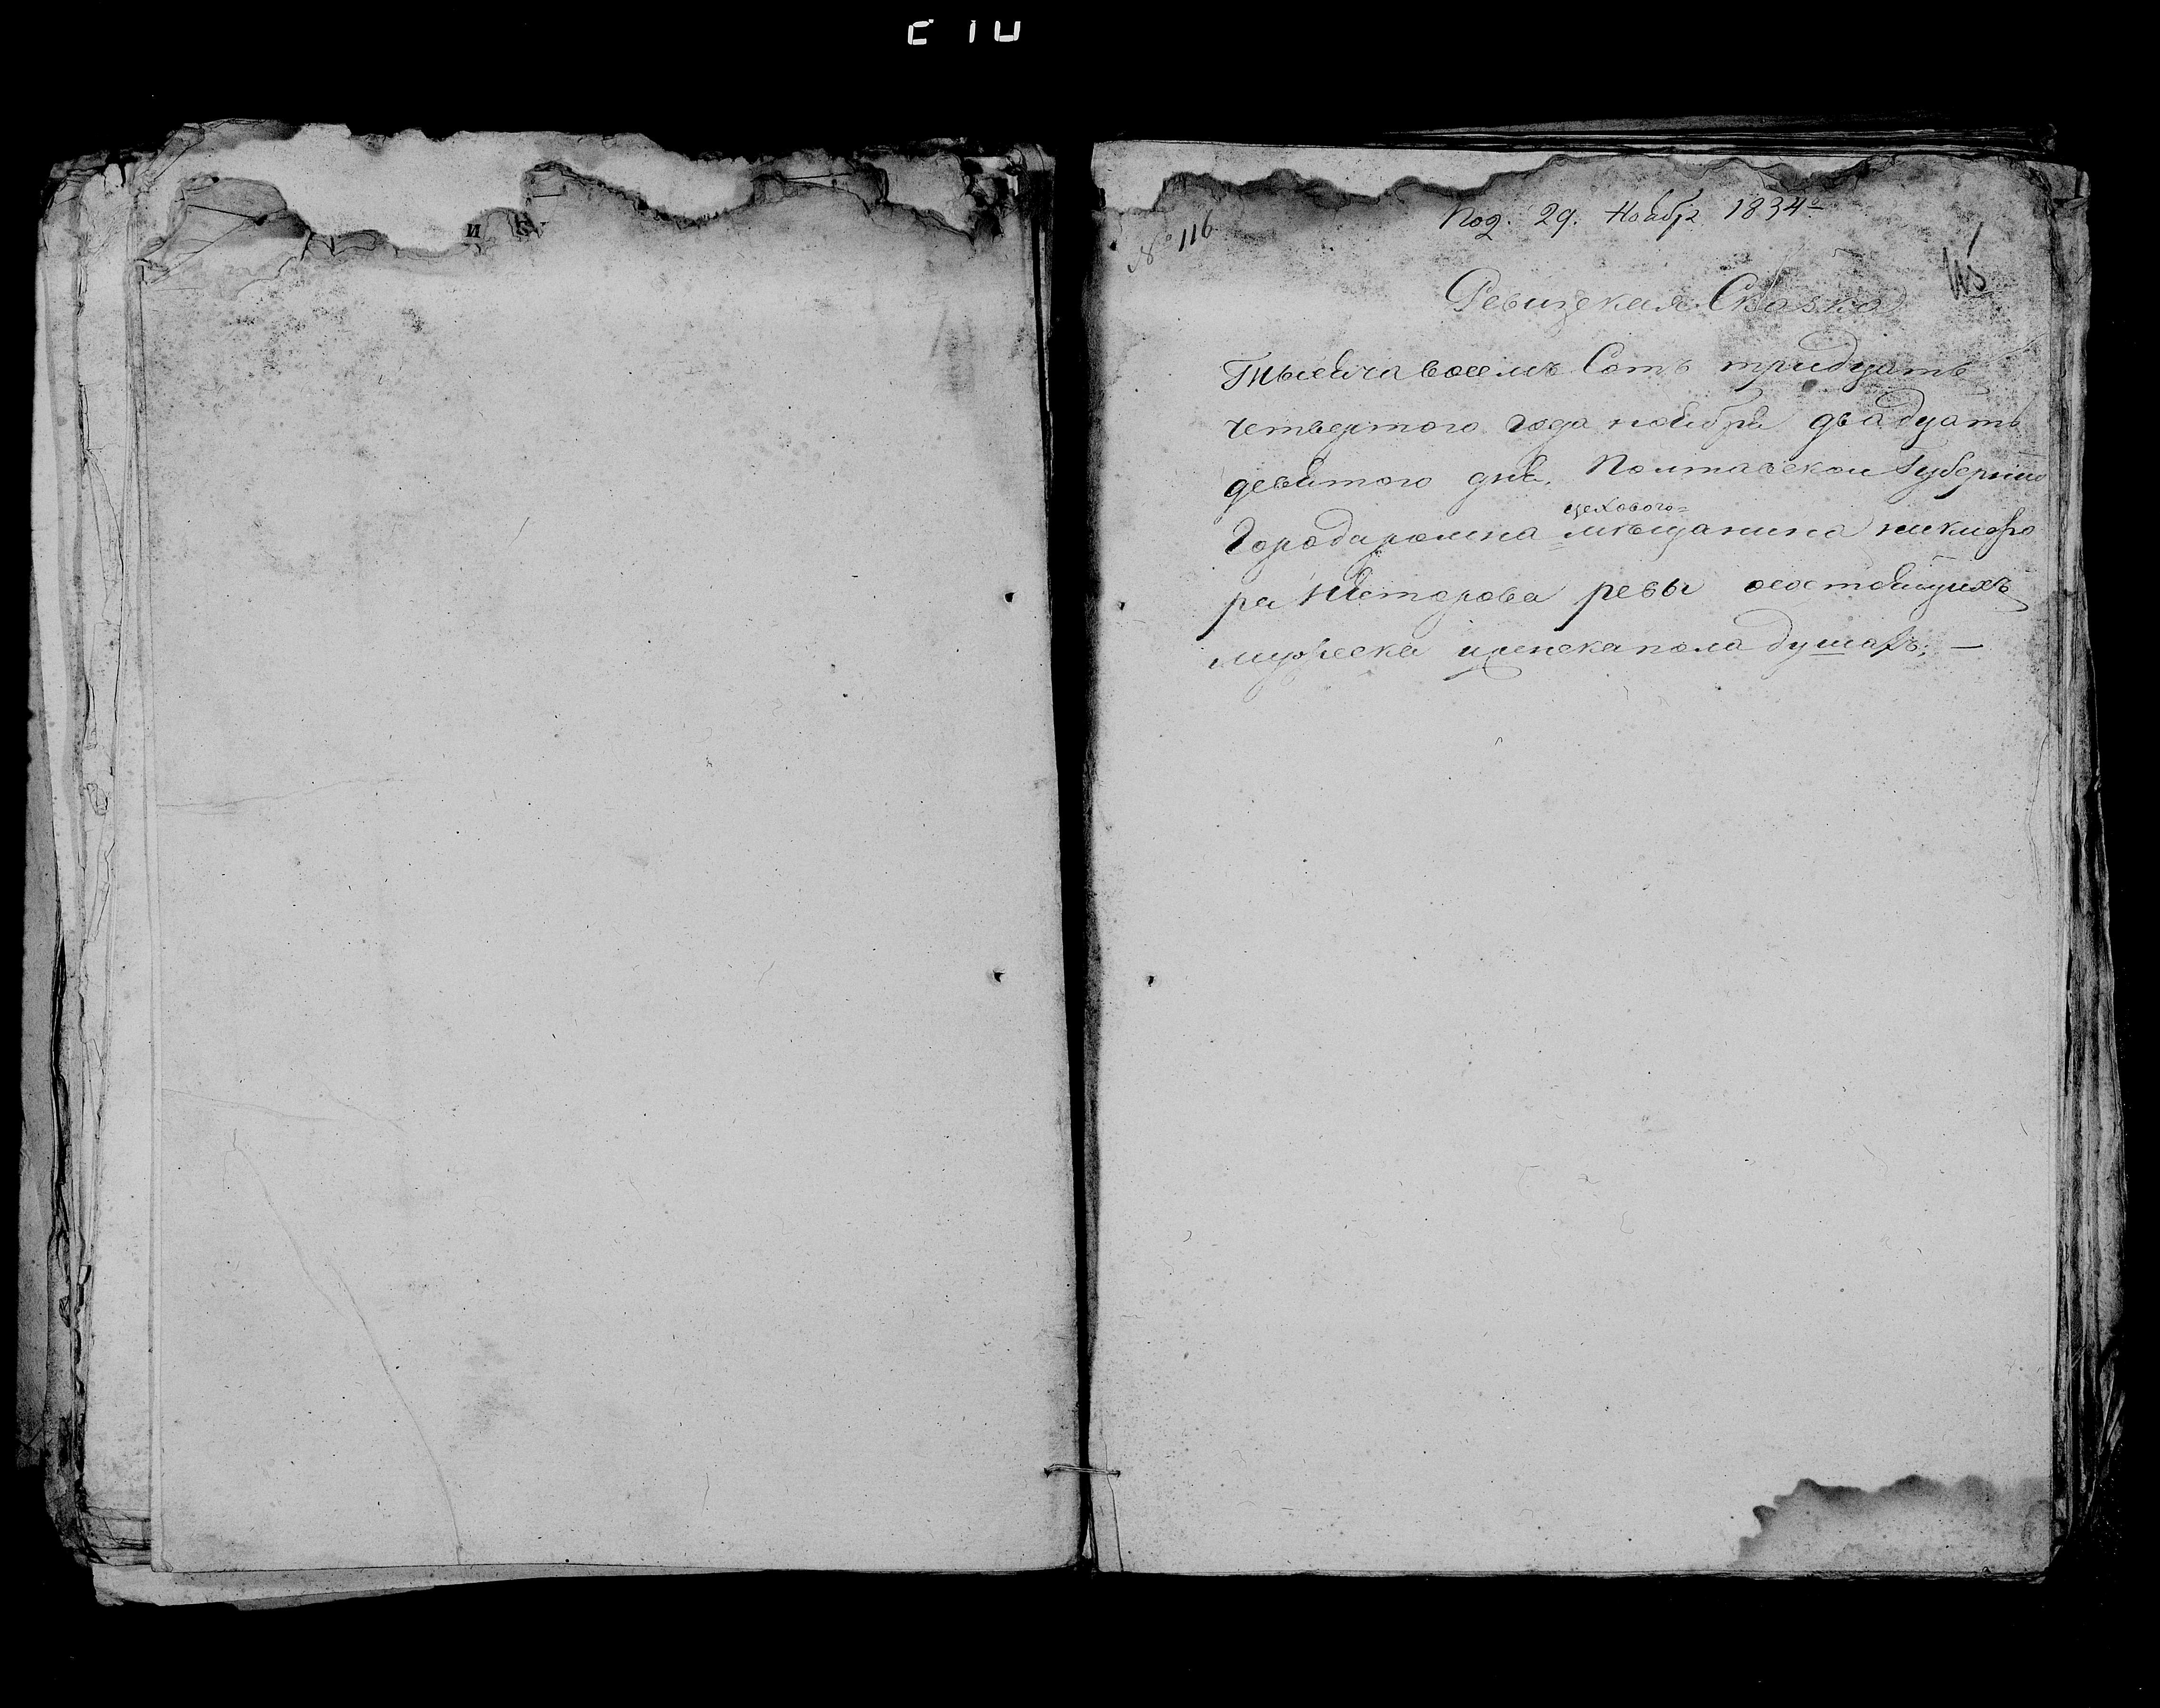 и к
№ 116
Под. 29. Ноябр 1834го
115
Ревизская Сказка
Тысяча восемъ Сотъ тридцать
четвертого года ноября двадцать
девятого дня, Полтавской Губернии
цехового
Города ромна мѣщанина никифо
ра Несторова ревы состоящихъ
мужеска и женска пола душахъ; —